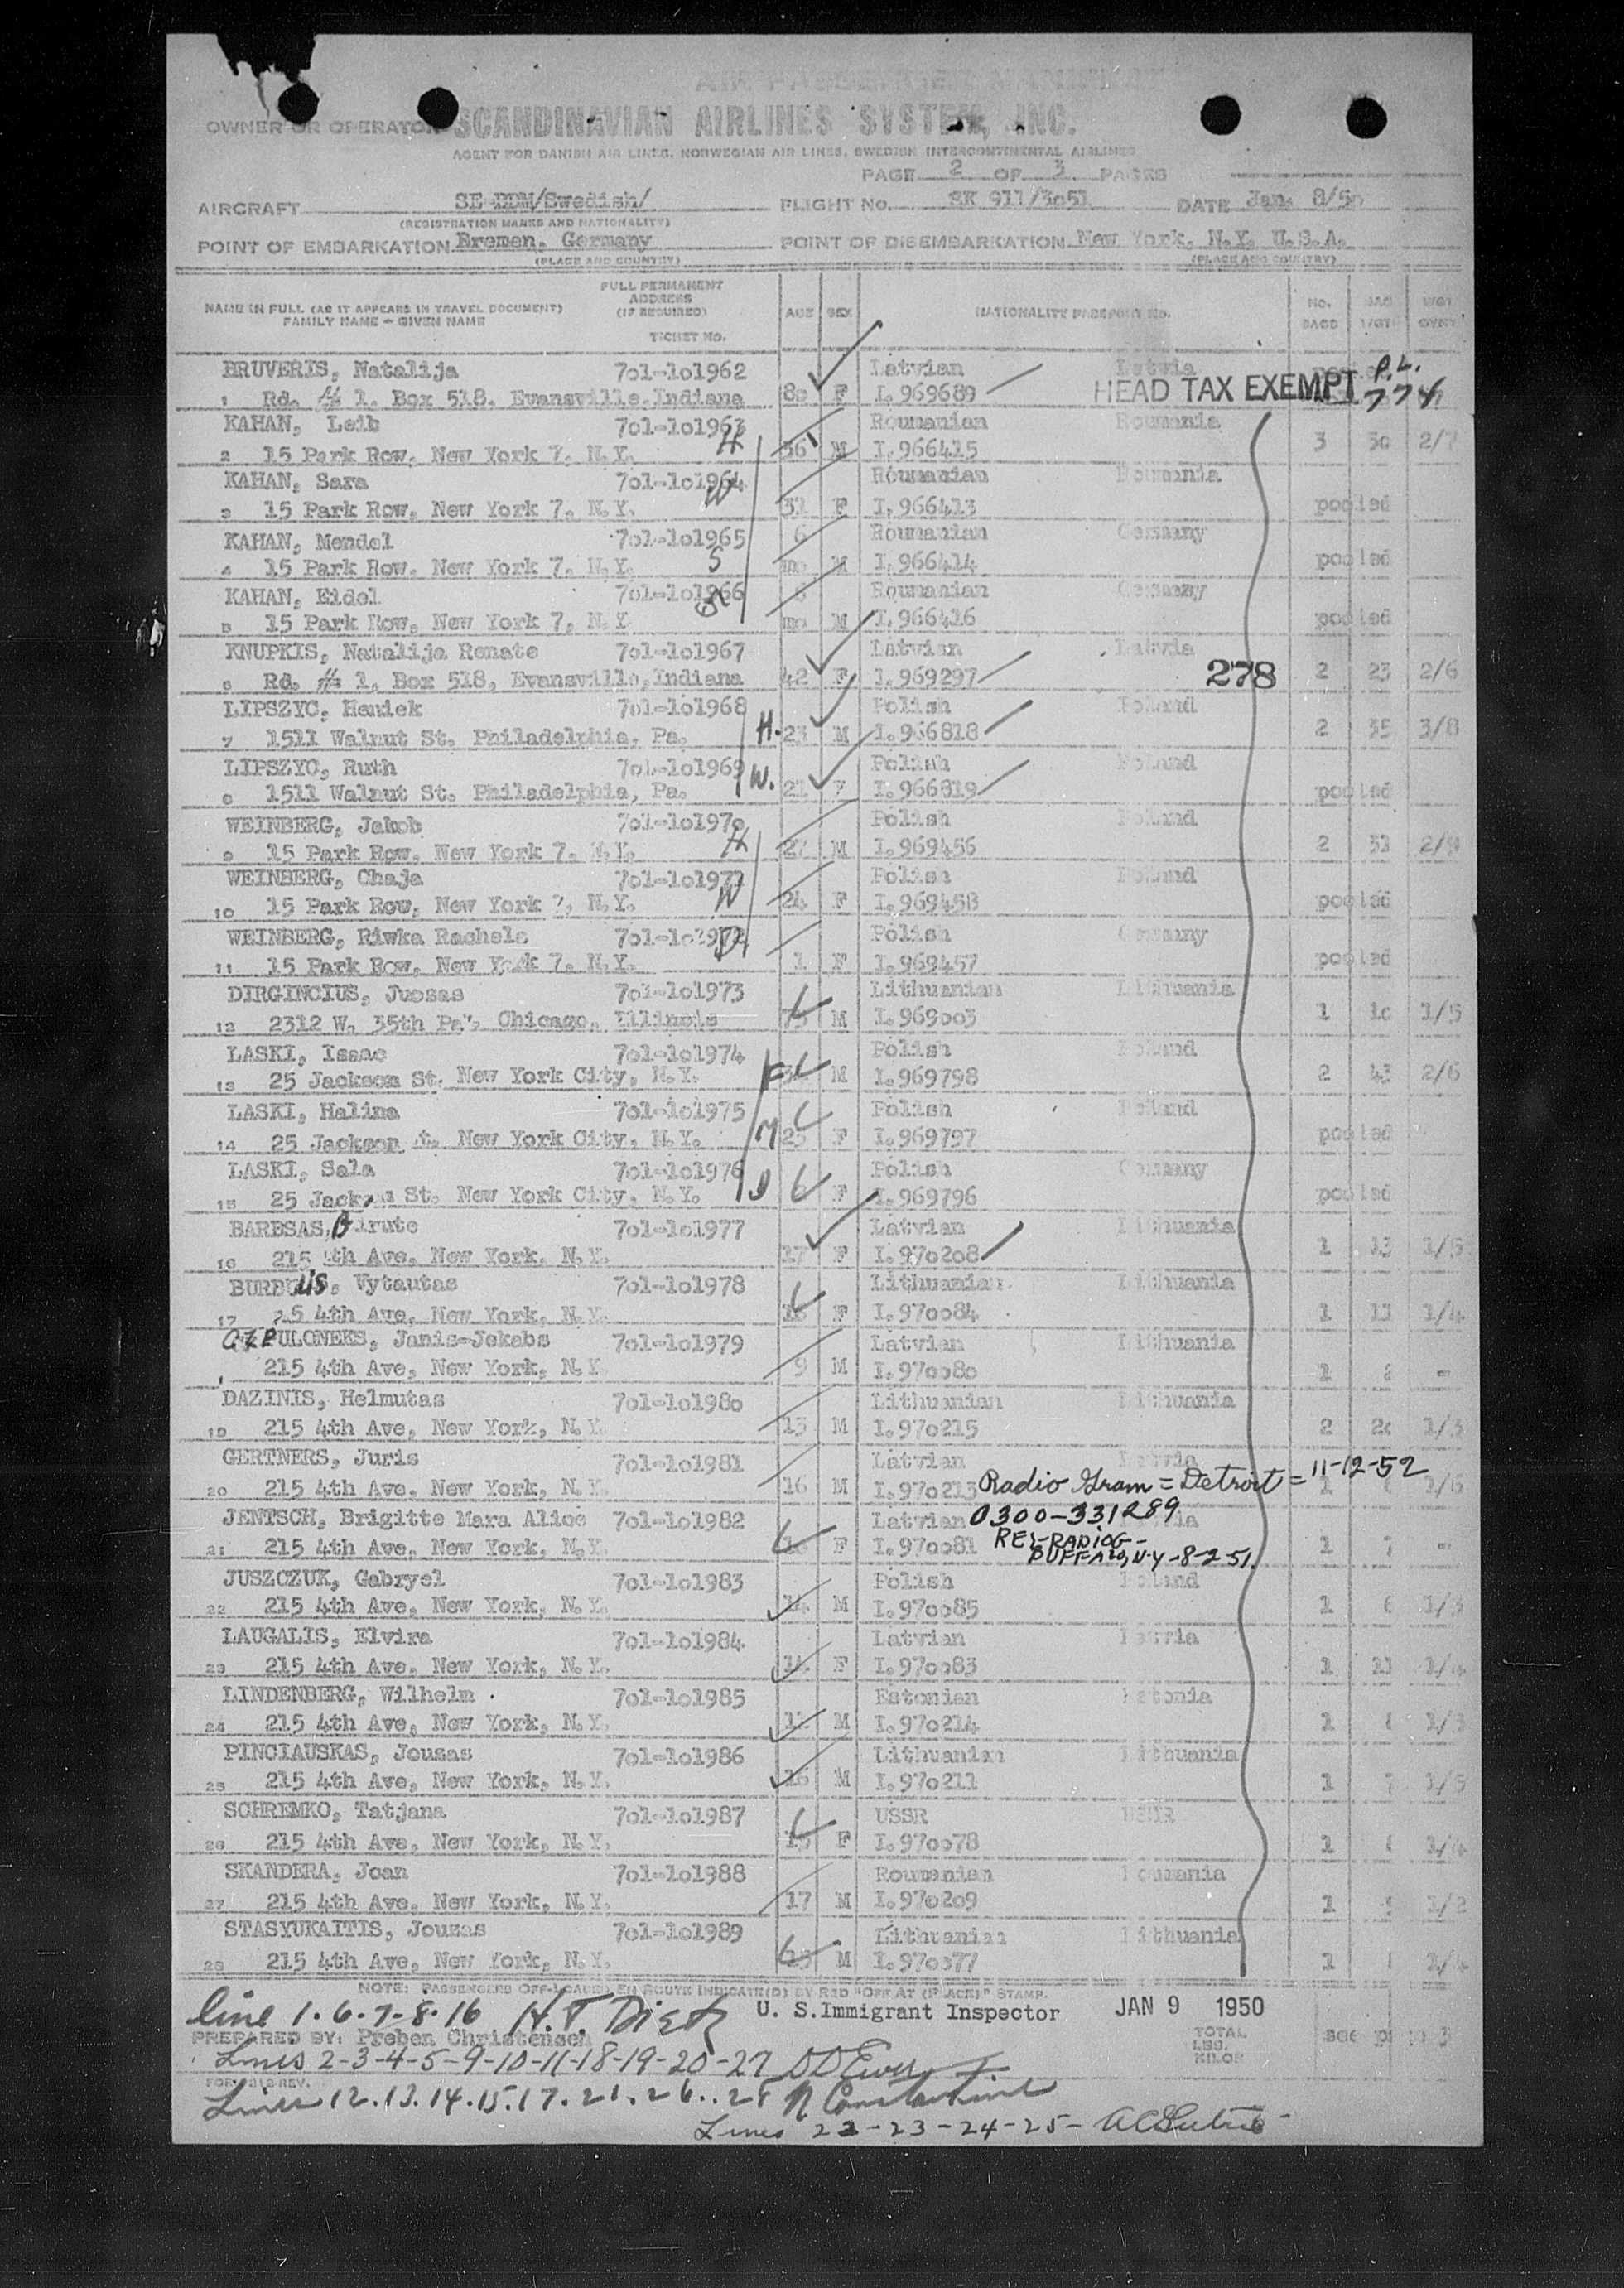 AIR PASSENGER MANIFEST
OWNER OR OPERATOR SCANDINAVIAN AIRLINES SYSTEM, INC.
AGENT FOR DANISH AIR LINES, NORWEGIAN AIR LINES, SWEDISH INTERCONTINENTAL AIRLINES
PAGE 2 OF 3 PAGES
AIRCRAFT SE-BDM/Swedish/ FLIGHT No. SK 911/3o51 DATE Jan. 8/5o
(REGISTRATION MARKS AND NATIONALITY)
POINT OF EMBARKATION Bremen, Germany POINT OF DISEMBARKATION New York, N.Y. U.S.A.
(PLACE AND COUNTRY) (PLACE AND COUNTRY)
NAME IN FULL (AS IT APPEARS IN TRAVEL DOCUMENT) FAMILY NAME - GIVEN NAME FULL PERMANENT ADDRESS (IF REQUIRED) TICKET NO. AGE SEX NATIONALITY PASSPORT NO. No. BAGS BAG WGT
BRUVERIS, Natalija 7o1-1o1962 Latvian Latvia P.L.
1 Rd. # 1. Box 518. Evansville, Indiana 8o F I.969689 HEAD TAX EXEMPT 774
KAHAN, Leib 7o1-1o1963 Roumanian Roumania
2 15 Park Row, New York 7, N.Y. H 36 M I.966415 3 3o 2/7
KAHAN, Sara 7o1-1o1964 Roumanian Roumania
3 15 Park Row, New York 7, N.Y. W 31 F I.966413 pooled
KAHAN, Mendel 7o1-1o1965 6 Roumanian Germany
4 15 Park Row. New York 7. N.Y. S mo M I.966414 pooled
KAHAN, Eidel 7o1-1o1966 Roumanian Germany
5 15 Park Row, New York 7, N.Y mo M I.966416 pooled
KNUPKIS, Natalija Renate 7o1-1o1967 Latvian Latvia
6 Rd. # 1, Box 518, Evansville, Indiana 42 F I.969297 278 2 23 2/6
LIPSZYC, Heniek 7o1-1o1968 Polish Poland
7 1511 Walnut St. Philadelphia, Pa. H. 23 M I.966818 2 35 3/8
LIPSZYC, Ruth 7o1-1o1969 Polish Poland
8 1511 Walnut St. Philadelphia, Pa. W. 21 F I.966819 pooled
WEINBERG, Jakob 7o1-1o197o Polish Poland
9 15 Park Row, New York 7. N.Y. H 27 M I.969456 2 31
WEINBERG, Chaja 7o1-1o1971 Polish Poland
10 15 Park Row, New York 7, N.Y. W 24 F I.969458 pooled
WEINBERG, Riwka Rachela 7o1-1o1972 Polish Germany
11 15 Park Row, New York 7. N.Y. D 1 F I.969457 pooled
DIRGINCIUS, Juosas 7o1-1o1973 Lithuanian Lithuania
12 2312 W. 35th Pa., Chicago, Illinois 75 M I.969oo3 1 1o 1/5
LASKI, Isaac 7o1-1o1974 Polish Poland
13 25 Jackson St. New York City, N.Y. F M I.969798 2 43 2/6
LASKI, Halina 7o1-1o1975 Polish Poland
14 25 Jackson t. New York City, N.Y. M 25 F I.969797 pooled
LASKI, Sala 7o1-1o1976 Polish Germany
15 25 Jack St. New York City. N.Y. D 6 F I.969796 pooled
BARBSAS, Birute 7o1-1o1977 Latvian Lithuania
16 215 4th Ave. New York, N.Y. 17 F I.97o2o8 1 13 1/5
BURBULIS, Vytautas 7o1-1o1978 Lithuanian Lithuania
17 25 4th Ave, New York, N.Y. F I.97oo84 1 11 1/4
CZEPULONEKS, Janis-Jekabs 7o1-1o1979 Latvian Lithuania
1 215 4th Ave, New York, N.Y. 9 M I.97oo8o 1 -
DAZINIS, Helmutas 7o1-1o198o Lithuanian Lithuania
19 215 4th Ave, New York, N.Y. 13 M I.97o215 2 2o 1/3
GERTNERS, Juris 7o1-1o1981 Latvian Latvia
20 215 4th Ave, New York, N.Y. 16 M I.97o213 Radio Gram = Detroit = 11-12-52 1 1/6
JENTSCH, Brigitte Mara Alice 7o1-1o1982 Latvian 0300-331289
21 215 4th Ave, New York, N.Y. F I.97oo81 REY-RADIOG- 1 7 -
BUFFALO, N-Y -8-2-51.
JUSZCZUK, Gabryel 7o1-1o1983 Polish Poland
22 215 4th Ave, New York, N.Y. 14 M I.97oo85 1 6 1/3
LAUGALIS, Elvira 7o1-1o1984 Latvian
23 215 4th Ave. New York, N.Y. 14 F I.97oo83 1 11 1/4
LINDENBERG, Wilhelm 7o1-1o1985 Estonian Estonia
24 215 4th Ave, New York, N.Y. 11 M I.97o214 1 1/3
PINCIAUSKAS, Jousas 7o1-1o1986 Lithuanian Lithuania
25 215 4th Ave, New York, N.Y. 16 M I.97o211 1 7 1/5
SCHREMKO, Tatjana 7o1-1o1987 USSR USSR
26 215 4th Ave, New York, N.Y. 15 F I.97oo78 1 1/4
SKANDERA, Joan 7o1-1o1988 Roumanian Roumania
27 215 4th Ave, New York, N.Y. 17 M I.97o2o9 1 1/2
STASYUKAITIS, Jouzas 7o1-1o1989 Lithuanian Lithuania
28 215 4th Ave, New York, N.Y. 15 M I.97oo77 1 1/4
NOTE: PASSENGERS OFF-LOADED EN ROUTE INDICATE(D) BY RED "OFF AT (PLACE)" STAMP.
line 1.6.7-8.16 H.T. Dietz U. S. Immigrant Inspector JAN 9 1950
PREPARED BY: Preben Christensen TOTAL LBS. KILOS see p 3
Lines 2-3-4-5-9-10-11-18-19-20-27
Lines 12.13.14.15.17.21.26..28 N Constantine
Lines 22-23-24-25-